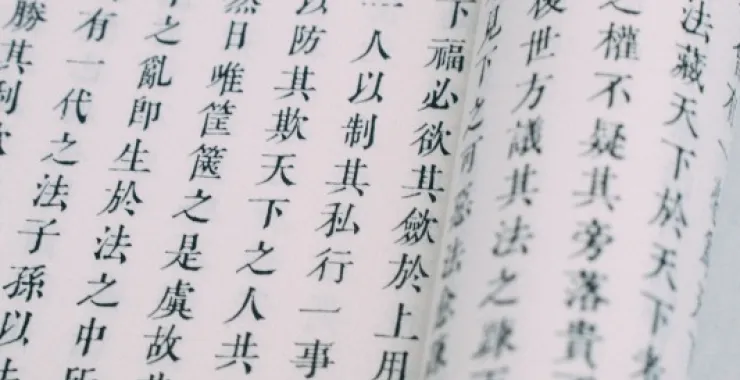 法藏天下於天下者
之權不疑其旁落貴
後世方議其法之疎
見下之可惡法愈疎
下福必欲其斂於上用
人以制其私行一事
以防其欺天下之人共
然日唯筐篋之是虞故
之亂即生於法之中所
有一代之法子孫以法
勝其利欲